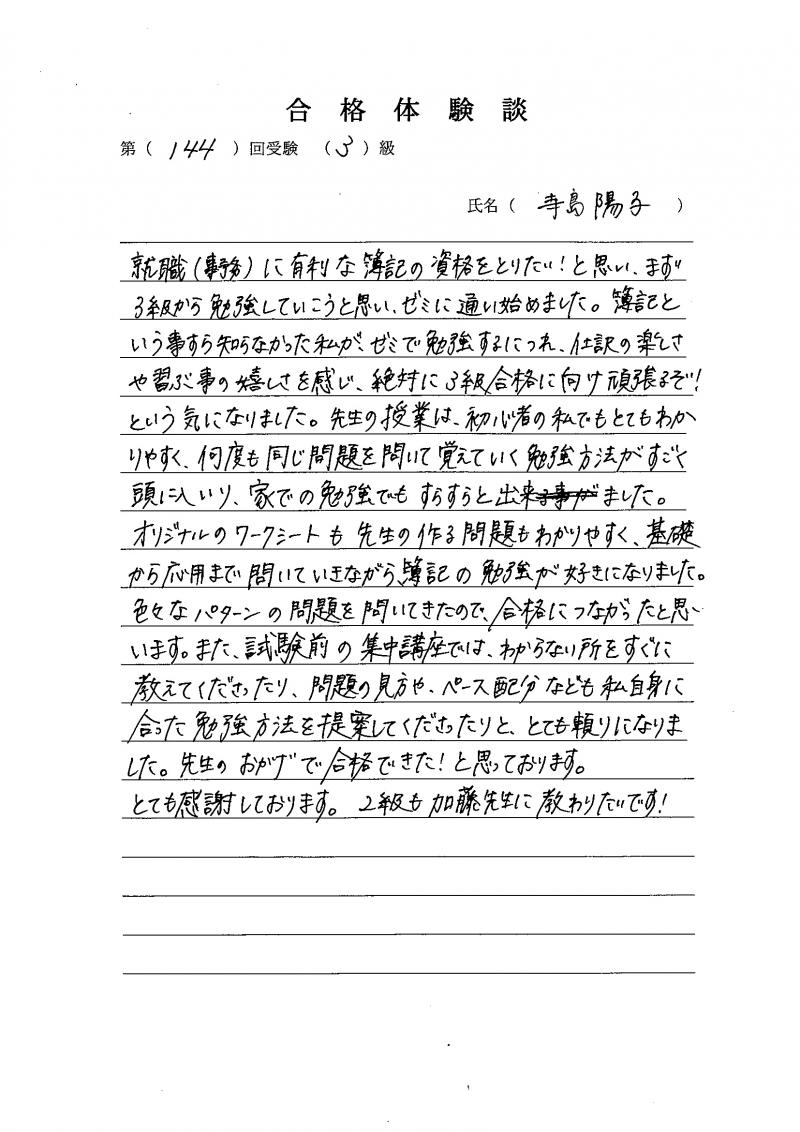 合格体験談
第（ 144 ）回受験 （ 3 ）級
氏名（ 寺島 陽子 ）
就職（事務）に有利な簿記の資格をとりたい！と思い、まず
3級から勉強していこうと思い、ゼミに通い始めました。簿記と
いう事すら知らなかった私が、ゼミで勉強するにつれ、仕訳の楽しさ
や習ぶ事の嬉しさを感じ、絶対に3級合格に向け頑張るぞ！
という気になりました。先生の授業は、初心者の私でもとてもわか
りやすく、何度も同じ問題を問いて覚えていく勉強方法がすごく
頭に入いり、家での勉強でもすらすらと出来る事がました。
オリジナルのワークシートも先生の作る問題もわかりやすく、基礎
から応用まで問いていきながら簿記の勉強が好きになりました。
色々なパターンの問題を問いてきたので、合格につながったと思
います。また、試験前の集中講座では、わからない所をすぐに
教えてくださったり、問題の見方や、ペース配分なども私自身に
合った勉強方法を提案してくださったりと、とても頼りになりま
した。先生のおかげで合格できた！と思っております。
とても感謝しております。2級も加藤先生に教わりたいです！